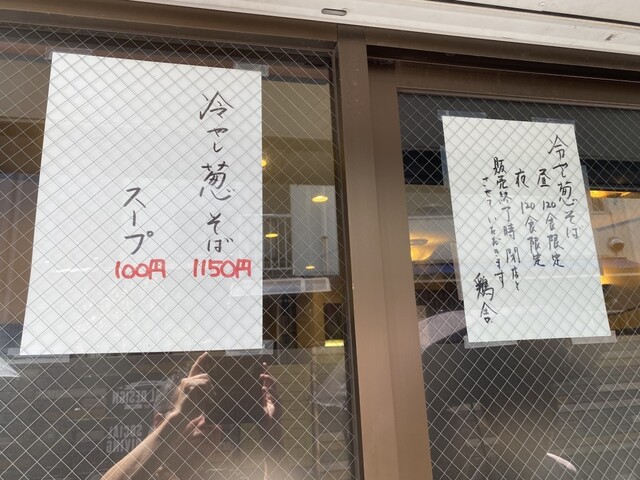 冷やし葱そば
1150円
スープ
100円
冷や葱そば
昼 120食限定
夜 120食限定
販売終了時閉店と
させていただきます
鶏舎
AL DESIGN
SOCIAL
GIVING